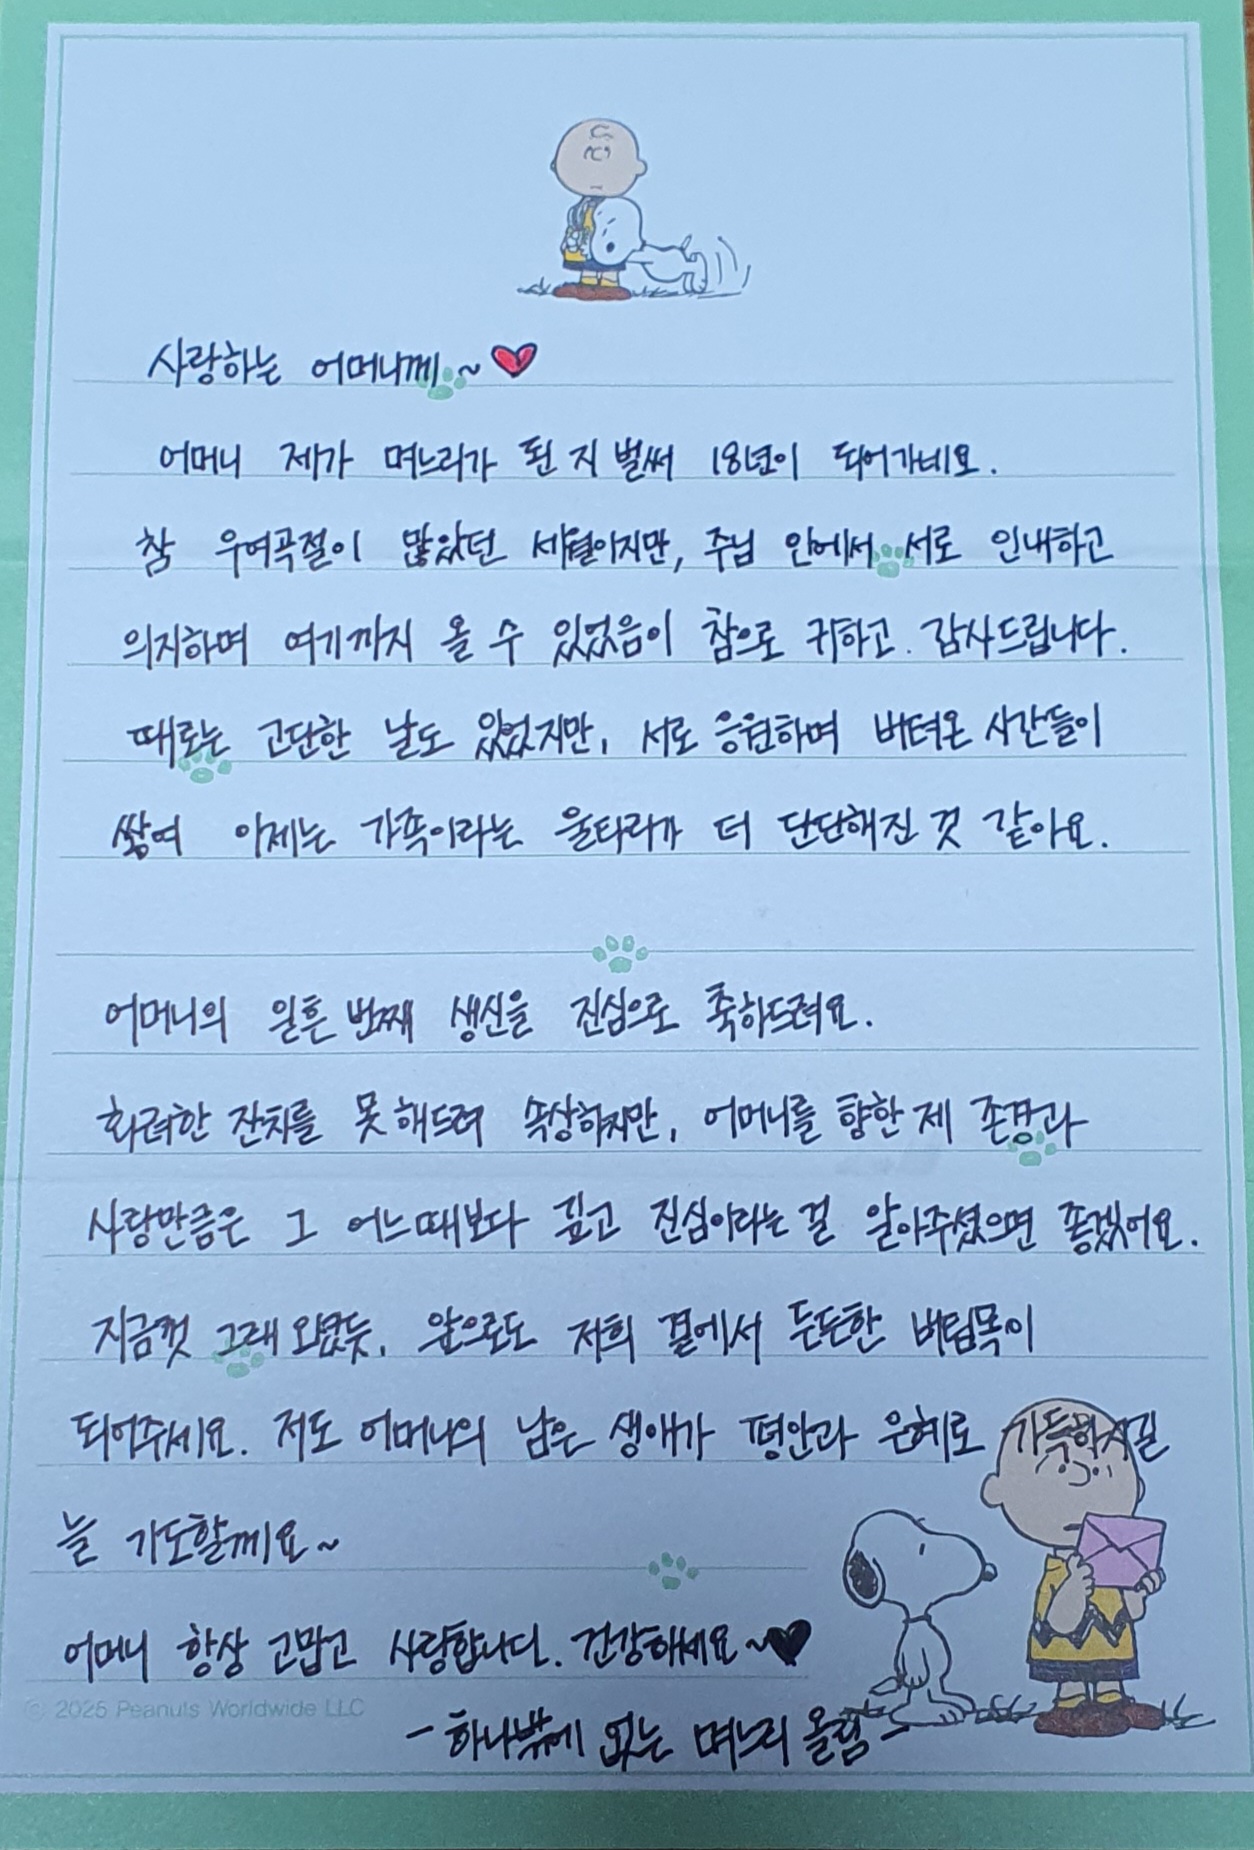 사랑하는 어머니께~♥
어머니 제가 며느리가 된 지 벌써 18년이 되어가네요.
참 우여곡절이 많았던 세월이지만, 주님 안에서 서로 인내하고
의지하며 여기까지 올 수 있었음이 참으로 귀하고. 감사드립니다.
때로는 고단한 날도 있었지만, 서로 응원하며 버텨온 시간들이
쌓여 이제는 가족이라는 울타리가 더 단단해진 것 같아요.
어머니의 일흔 번째 생신을 진심으로 축하드려요.
화려한 잔치를 못 해드려 속상하지만, 어머니를 향한 제 존경과
사랑만큼은 그 어느때보다 깊고 진심이라는 걸 알아주셨으면 좋겠어요.
지금껏 그래 오셨듯, 앞으로도 저희 곁에서 든든한 버팀목이
되어주세요. 저도 어머니의 남은 생애가 평안과 은혜로 가득하시길
늘 기도할께요~
어머니 항상 고맙고 사랑합니다. 건강하세요~♥
© 2025 Peanuts Worldwide LLC
- 하나밖에 없는 며느리 올림 -